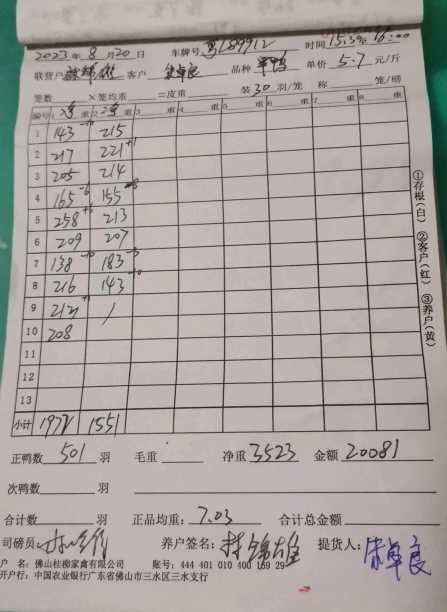 2023年8月20日 车牌号 粤L89912 时间 15:30 16:00
联营户 客户 朱卓良 品种 单价 5.7 元/斤
笼数 ×笼均重 =皮重 装30羽/笼 称 笼/磅
编号 1 净重 2 净重 3 重 4 重 5 重 6 重 7 重 8 重
1 143 -10 215
2 217 221 +1
3 205 214
4 165 -6 155 -8
5 258 +6 213
6 209 207
7 138 -10 183 -3
8 216 143 -10
9 212 +1 /
10 208
11
12
13
小计 1972 1551
正鸭数 501 羽 毛重 净重 3523 金额 20081
次鸭数 羽
合计数 羽 正品均重: 7.03 合计总金额
司磅员: 养户签名: 林锦雄 提货人: 朱卓良
户 名: 佛山桂柳家禽有限公司 账号: 444 401 010 400 169 29
开户行: 中国农业银行广东省佛山市三水区三水支行
①存根(白) ②客户(红) ③养户(黄)